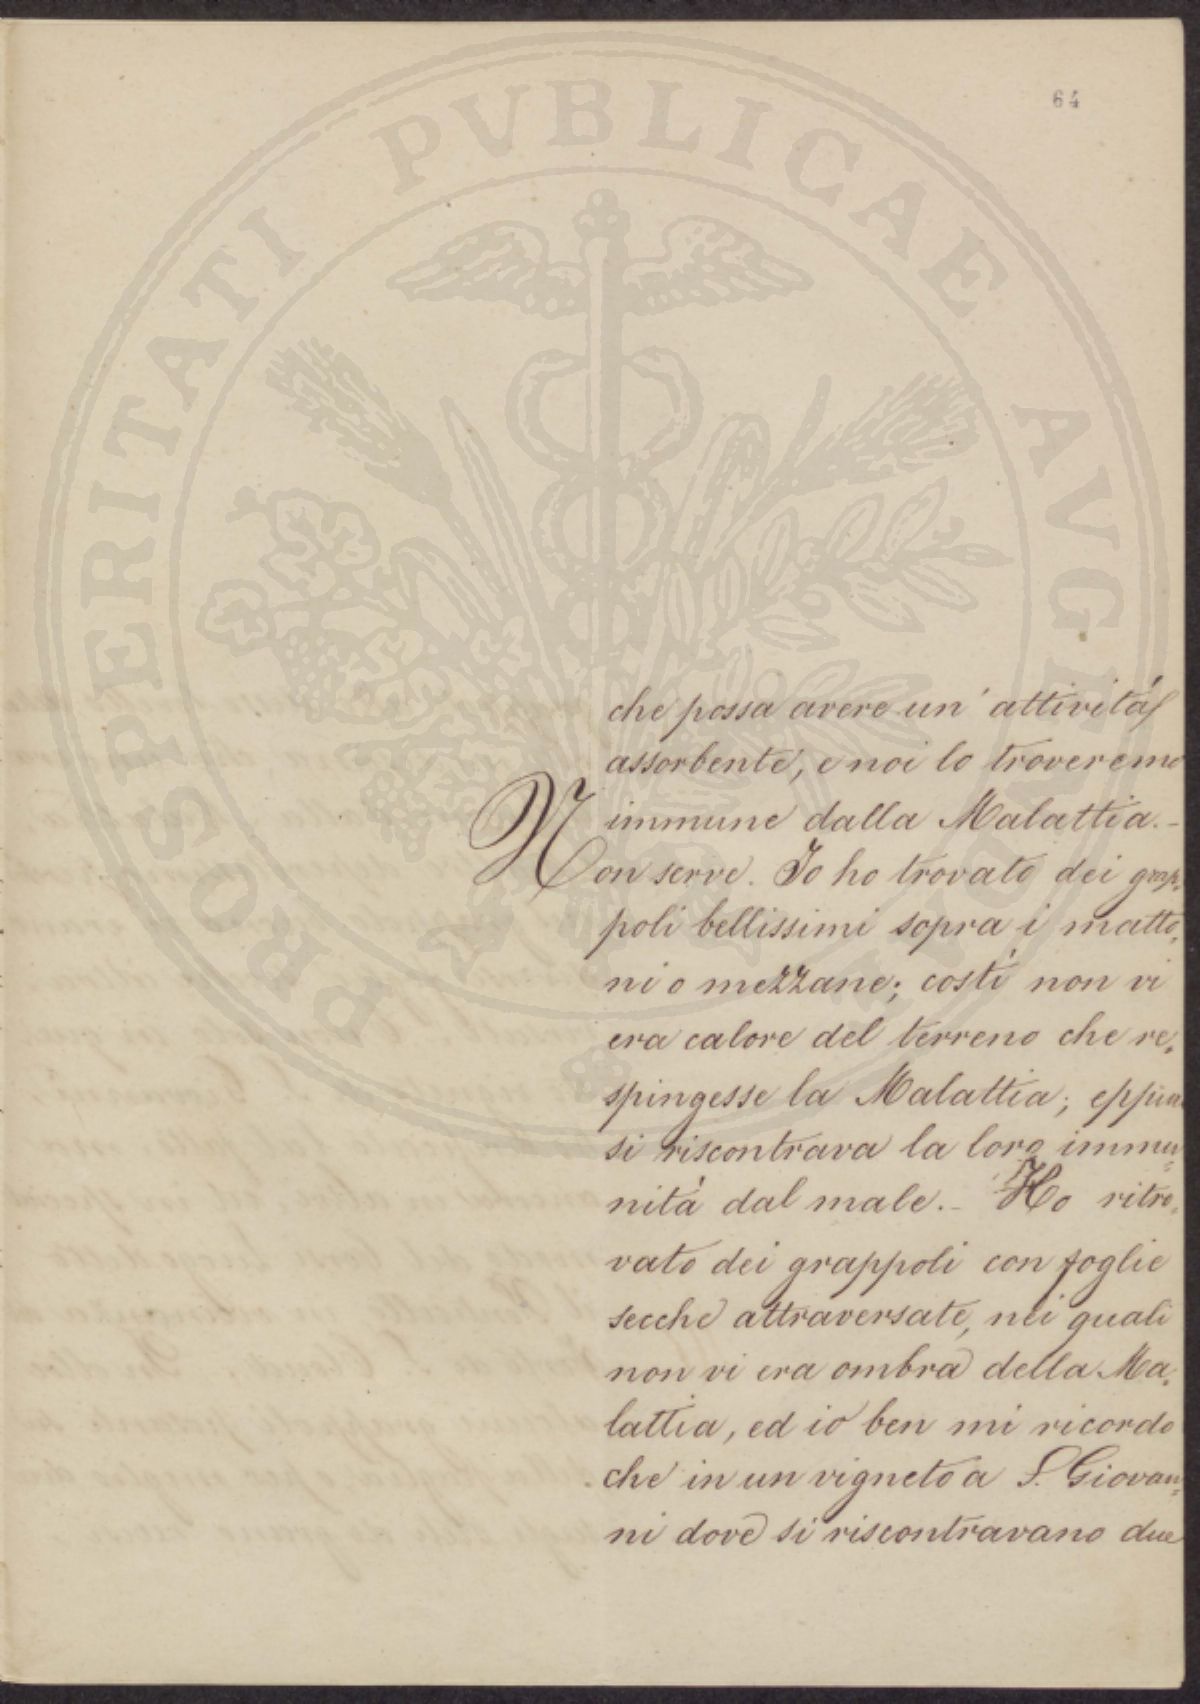 64
PROSPERITATI PUBLICAE AVGENDAE
che possa avere un' attività
assorbente, e noi lo troveremo
immune dalla Malattia.-
Non serve. Io ho trovato dei grap-
poli bellissimi sopra i matto-
ni o mezzane; costì non vi
era calore del terreno che re-
spingesse la Malattia; eppur
si riscontrava la loro immu-
nità dal male.- Ho ritro-
vato dei grappoli con foglie
secche attraversate, nei quali
non vi era ombra della Ma-
lattia, ed io ben mi ricordo
che in un vigneto a S. Giovan-
ni dove si riscontravano due